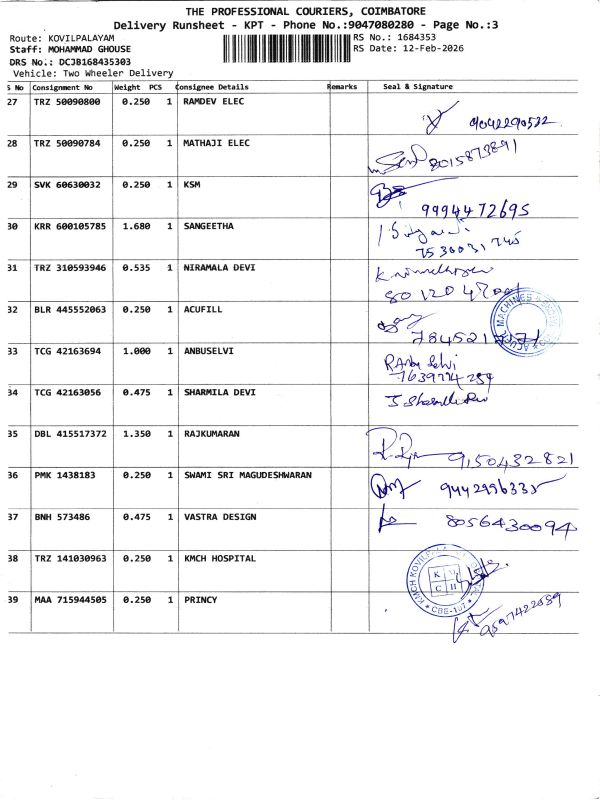 THE PROFESSIONAL COURIERS, COIMBATORE
Delivery Runsheet - KPT - Phone No.:9047080280 - Page No.:3
Route: KOVILPALAYAM RS No.: 1684353
Staff: MOHAMMAD GHOUSE RS Date: 12-Feb-2026
DRS No.: DCJB168435303
Vehicle: Two Wheeler Delivery
S No Consignment No Weight PCS Consignee Details Remarks Seal & Signature
27 TRZ 50090800 0.250 1 RAMDEV ELEC
28 TRZ 50090784 0.250 1 MATHAJI ELEC 8015873891
29 SVK 60630032 0.250 1 KSM 9994472695
30 KRR 600105785 1.680 1 SANGEETHA 7530031745
31 TRZ 310593946 0.535 1 NIRAMALA DEVI
32 BLR 445552063 0.250 1 ACUFILL
33 TCG 42163694 1.000 1 ANBUSELVI
34 TCG 42163056 0.475 1 SHARMILA DEVI
35 DBL 415517372 1.350 1 RAJKUMARAN 9150432821
36 PMK 1438183 0.250 1 SWAMI SRI MAGUDESHWARAN 9442996335
37 BNH 573486 0.475 1 VASTRA DESIGN 8056430094
38 TRZ 141030963 0.250 1 KMCH HOSPITAL
KMCH KOVILPALAYAM
CBE-107
39 MAA 715944505 0.250 1 PRINCY